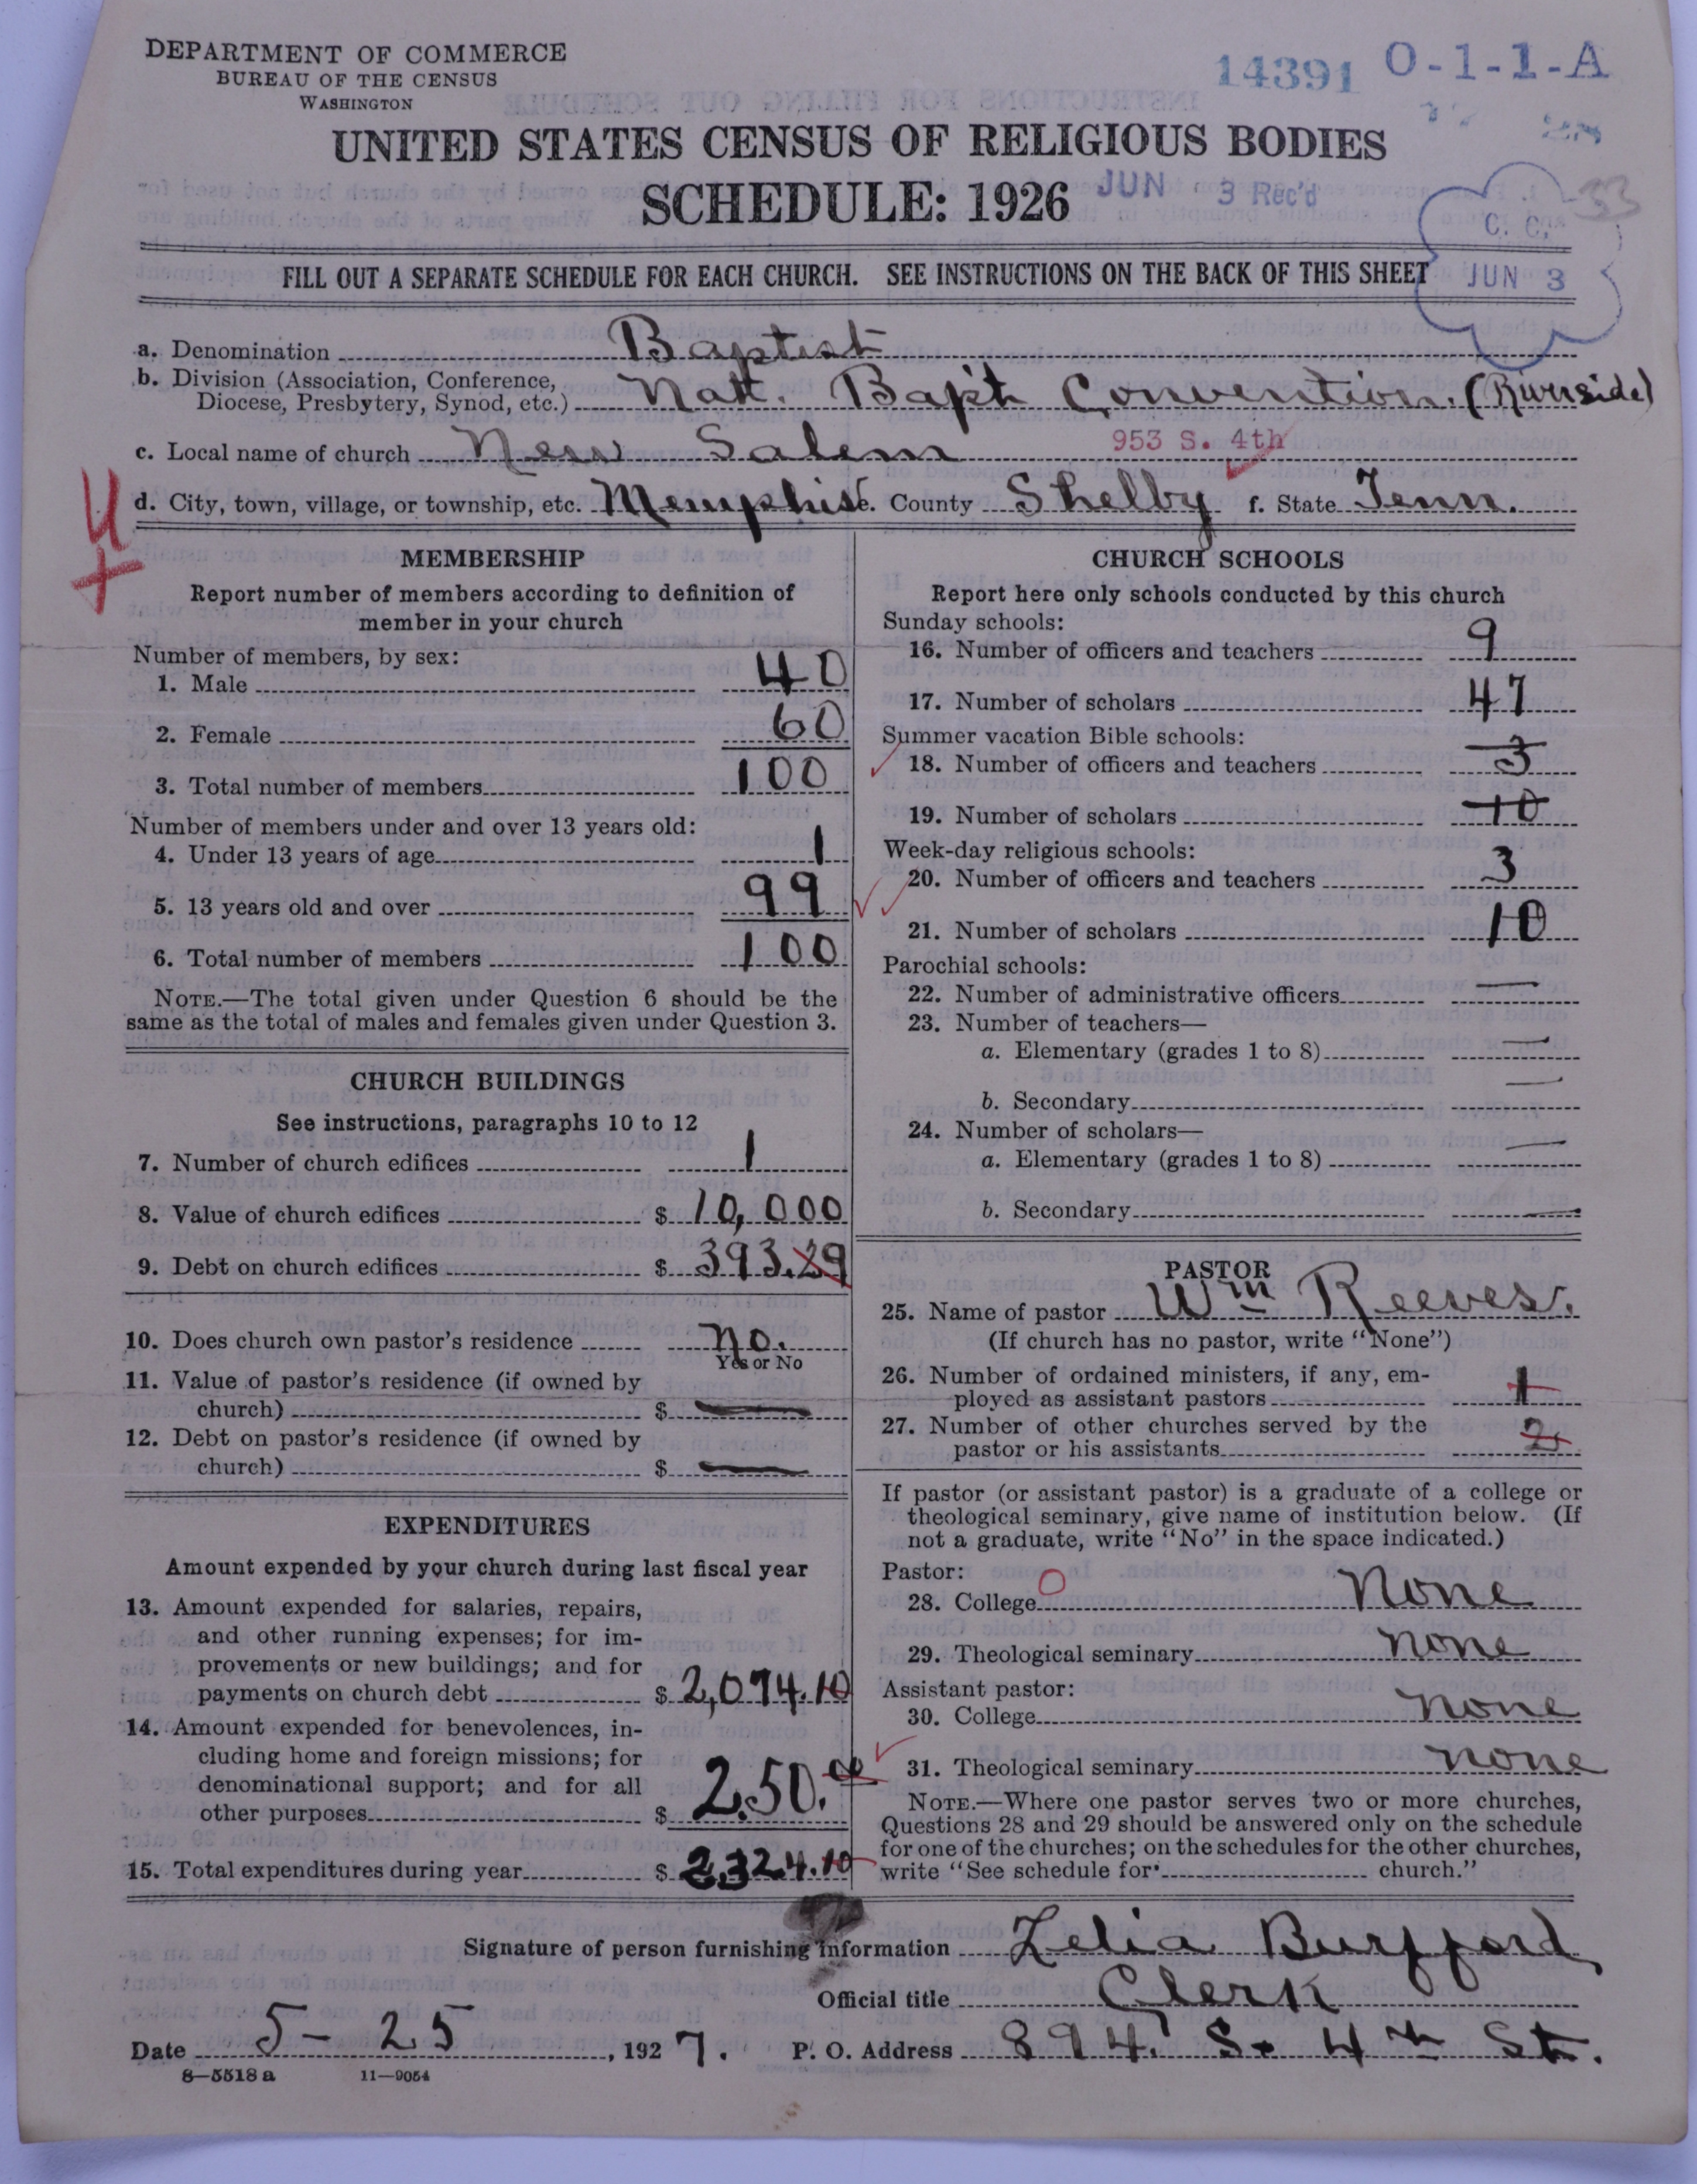 DEPARTMENT OF COMMERCE
BUREAU OF THE CENSUS
WASHINGTON
14391 O-1-1-A
UNITED STATES CENSUS OF RELIGIOUS BODIES
SCHEDULE: 1926
JUN 3 Rec'd
33
C. C.
JUN 3
FILL OUT A SEPARATE SCHEDULE FOR EACH CHURCH. SEE INSTRUCTIONS ON THE BACK OF THIS SHEET
a. Denomination Baptist
b. Division (Association, Conference,
Diocese, Presbytery, Synod, etc.) Natl. Bap't Convention. (Riverside)
953 S. 4th
c. Local name of church New Salem
d. City, town, village, or township, etc. Memphis e. County Shelby f. State Tenn.
MEMBERSHIP
Report number of members according to definition of
member in your church
Number of members, by sex:
1. Male 40
2. Female 60
3. Total number of members 100
Number of members under and over 13 years old:
4. Under 13 years of age 1
5. 13 years old and over 99
6. Total number of members 100
NOTE.—The total given under Question 6 should be the
same as the total of males and females given under Question 3.
CHURCH BUILDINGS
See instructions, paragraphs 10 to 12
7. Number of church edifices 1
8. Value of church edifices $ 10,000
9. Debt on church edifices $ 393.29
10. Does church own pastor's residence no.
Yes or No
11. Value of pastor's residence (if owned by
church) $ —
12. Debt on pastor's residence (if owned by
church) $ —
EXPENDITURES
Amount expended by your church during last fiscal year
13. Amount expended for salaries, repairs,
and other running expenses; for im-
provements or new buildings; and for
payments on church debt $ 2,074.10
14. Amount expended for benevolences, in-
cluding home and foreign missions; for
denominational support; and for all
other purposes $ 250.00
15. Total expenditures during year $ 2,324.10
CHURCH SCHOOLS
Report here only schools conducted by this church
Sunday schools:
16. Number of officers and teachers 9
17. Number of scholars 47
Summer vacation Bible schools:
18. Number of officers and teachers 3
19. Number of scholars 10
Week-day religious schools:
20. Number of officers and teachers 3
21. Number of scholars 10
Parochial schools:
22. Number of administrative officers —
23. Number of teachers—
a. Elementary (grades 1 to 8) —
b. Secondary —
24. Number of scholars—
a. Elementary (grades 1 to 8) —
b. Secondary —
PASTOR
25. Name of pastor Wm Reeves.
(If church has no pastor, write "None")
26. Number of ordained ministers, if any, em-
ployed as assistant pastors 1
27. Number of other churches served by the
pastor or his assistants 2
If pastor (or assistant pastor) is a graduate of a college or
theological seminary, give name of institution below. (If
not a graduate, write "No" in the space indicated.)
Pastor:
28. College O None
29. Theological seminary none
Assistant pastor:
30. College none
31. Theological seminary none
NOTE.—Where one pastor serves two or more churches,
Questions 28 and 29 should be answered only on the schedule
for one of the churches; on the schedules for the other churches,
write "See schedule for church."
Signature of person furnishing information Zelia Burfford
Official title Clerk
Date 5-25, 1927. P. O. Address 894 S. 4th St.
8—5518a 11—9054